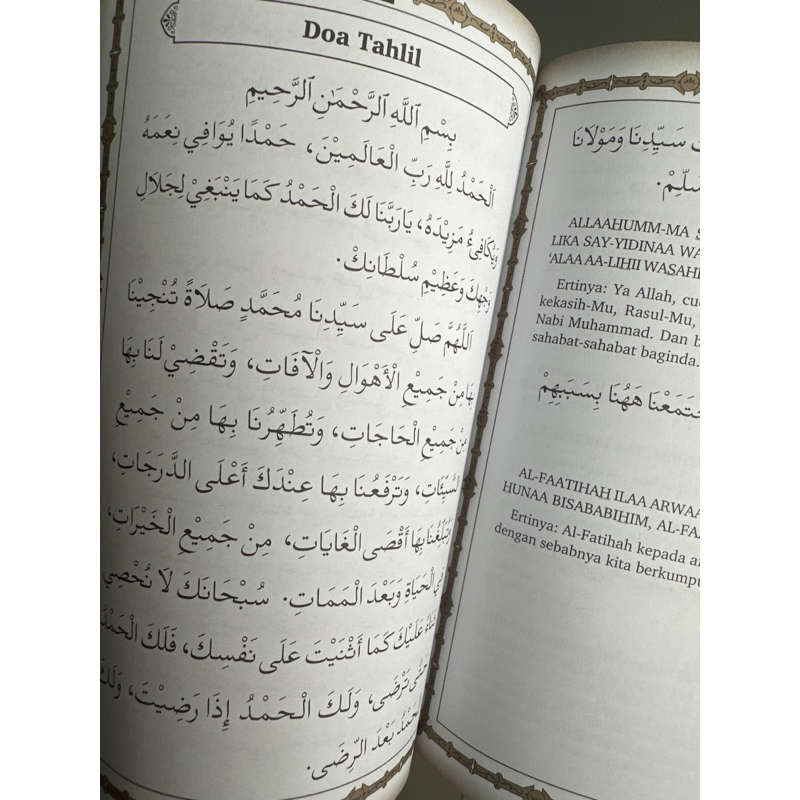 Doa Tahlil
بِسْمِ ٱللَّهِ ٱلرَّحْمَٰنِ ٱلرَّحِيمِ
اَلْحَمْدُ لِلَّهِ رَبِّ الْعَالَمِيْنَ، حَمْدًا يُوَافِي نِعَمَهُ
وَيُكَافِئُ مَزِيْدَهُ، يَارَبَّنَا لَكَ الْحَمْدُ كَمَا يَنْبَغِيْ لِجَلَالِ
وَجْهِكَ وَعَظِيْمِ سُلْطَانِكْ.
اَللَّهُمَّ صَلِّ عَلَى سَيِّدِنَا مُحَمَّدٍ صَلَاةً تُنْجِيْنَا
بِهَا مِنْ جَمِيْعِ الْأَهْوَالِ وَالْآفَاتِ، وَتَقْضِيْ لَنَا بِهَا
مِنْ جَمِيْعِ الْحَاجَاتِ، وَتُطَهِّرُنَا بِهَا مِنْ جَمِيْعِ
السَّيِّئَاتِ، وَتَرْفَعُنَا بِهَا عِنْدَكَ أَعْلَى الدَّرَجَاتِ،
وَتُبَلِّغُنَا بِهَا أَقْصَى الْغَايَاتِ، مِنْ جَمِيْعِ الْخَيْرَاتِ،
فِي الْحَيَاةِ وَبَعْدَ الْمَمَاتِ. سُبْحَانَكَ لَا نُحْصِي
ثَنَاءً عَلَيْكَ كَمَا أَثْنَيْتَ عَلَى نَفْسِكَ، فَلَكَ الْحَمْدُ
حَتَّى تَرْضَى، وَلَكَ الْحَمْدُ إِذَا رَضِيْتَ، وَلَكَ
الْحَمْدُ بَعْدَ الرِّضَى.
سَيِّدِنَا وَمَوْلَانَا
ALLAAHUMM-MA
LIKA SAY-YIDINAA
'ALAA AA-LIHII
Ertinya: Ya Allah,
kekasih-Mu, Rasul-Mu,
Nabi Muhammad. Dan
sahabat-sahabat baginda.
هَهُنَا بِسَبَبِهِمْ
AL-FAATIHAH ILAA
HUNAA BISABABIHIM,
Ertinya: Al-Fatihah kepada
dengan sebabnya kita